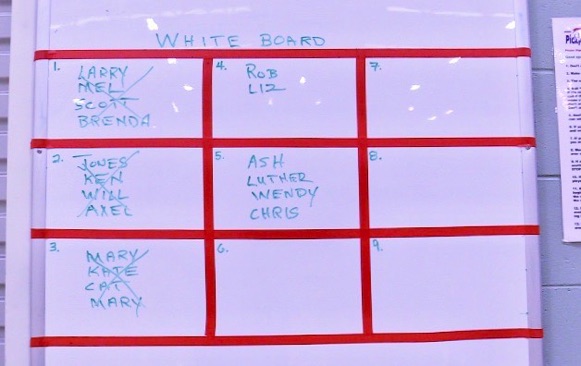 WHITE BOARD
1.
LARRY
MEL
SCOTT
BRENDA
4.
ROB
LIZ
7.
2.
JONES
KEN
WILL
AXEL
5.
ASH
LUTHER
WENDY
CHRIS
8.
3.
MARY
KATE
CAT
MARY
6.
9.